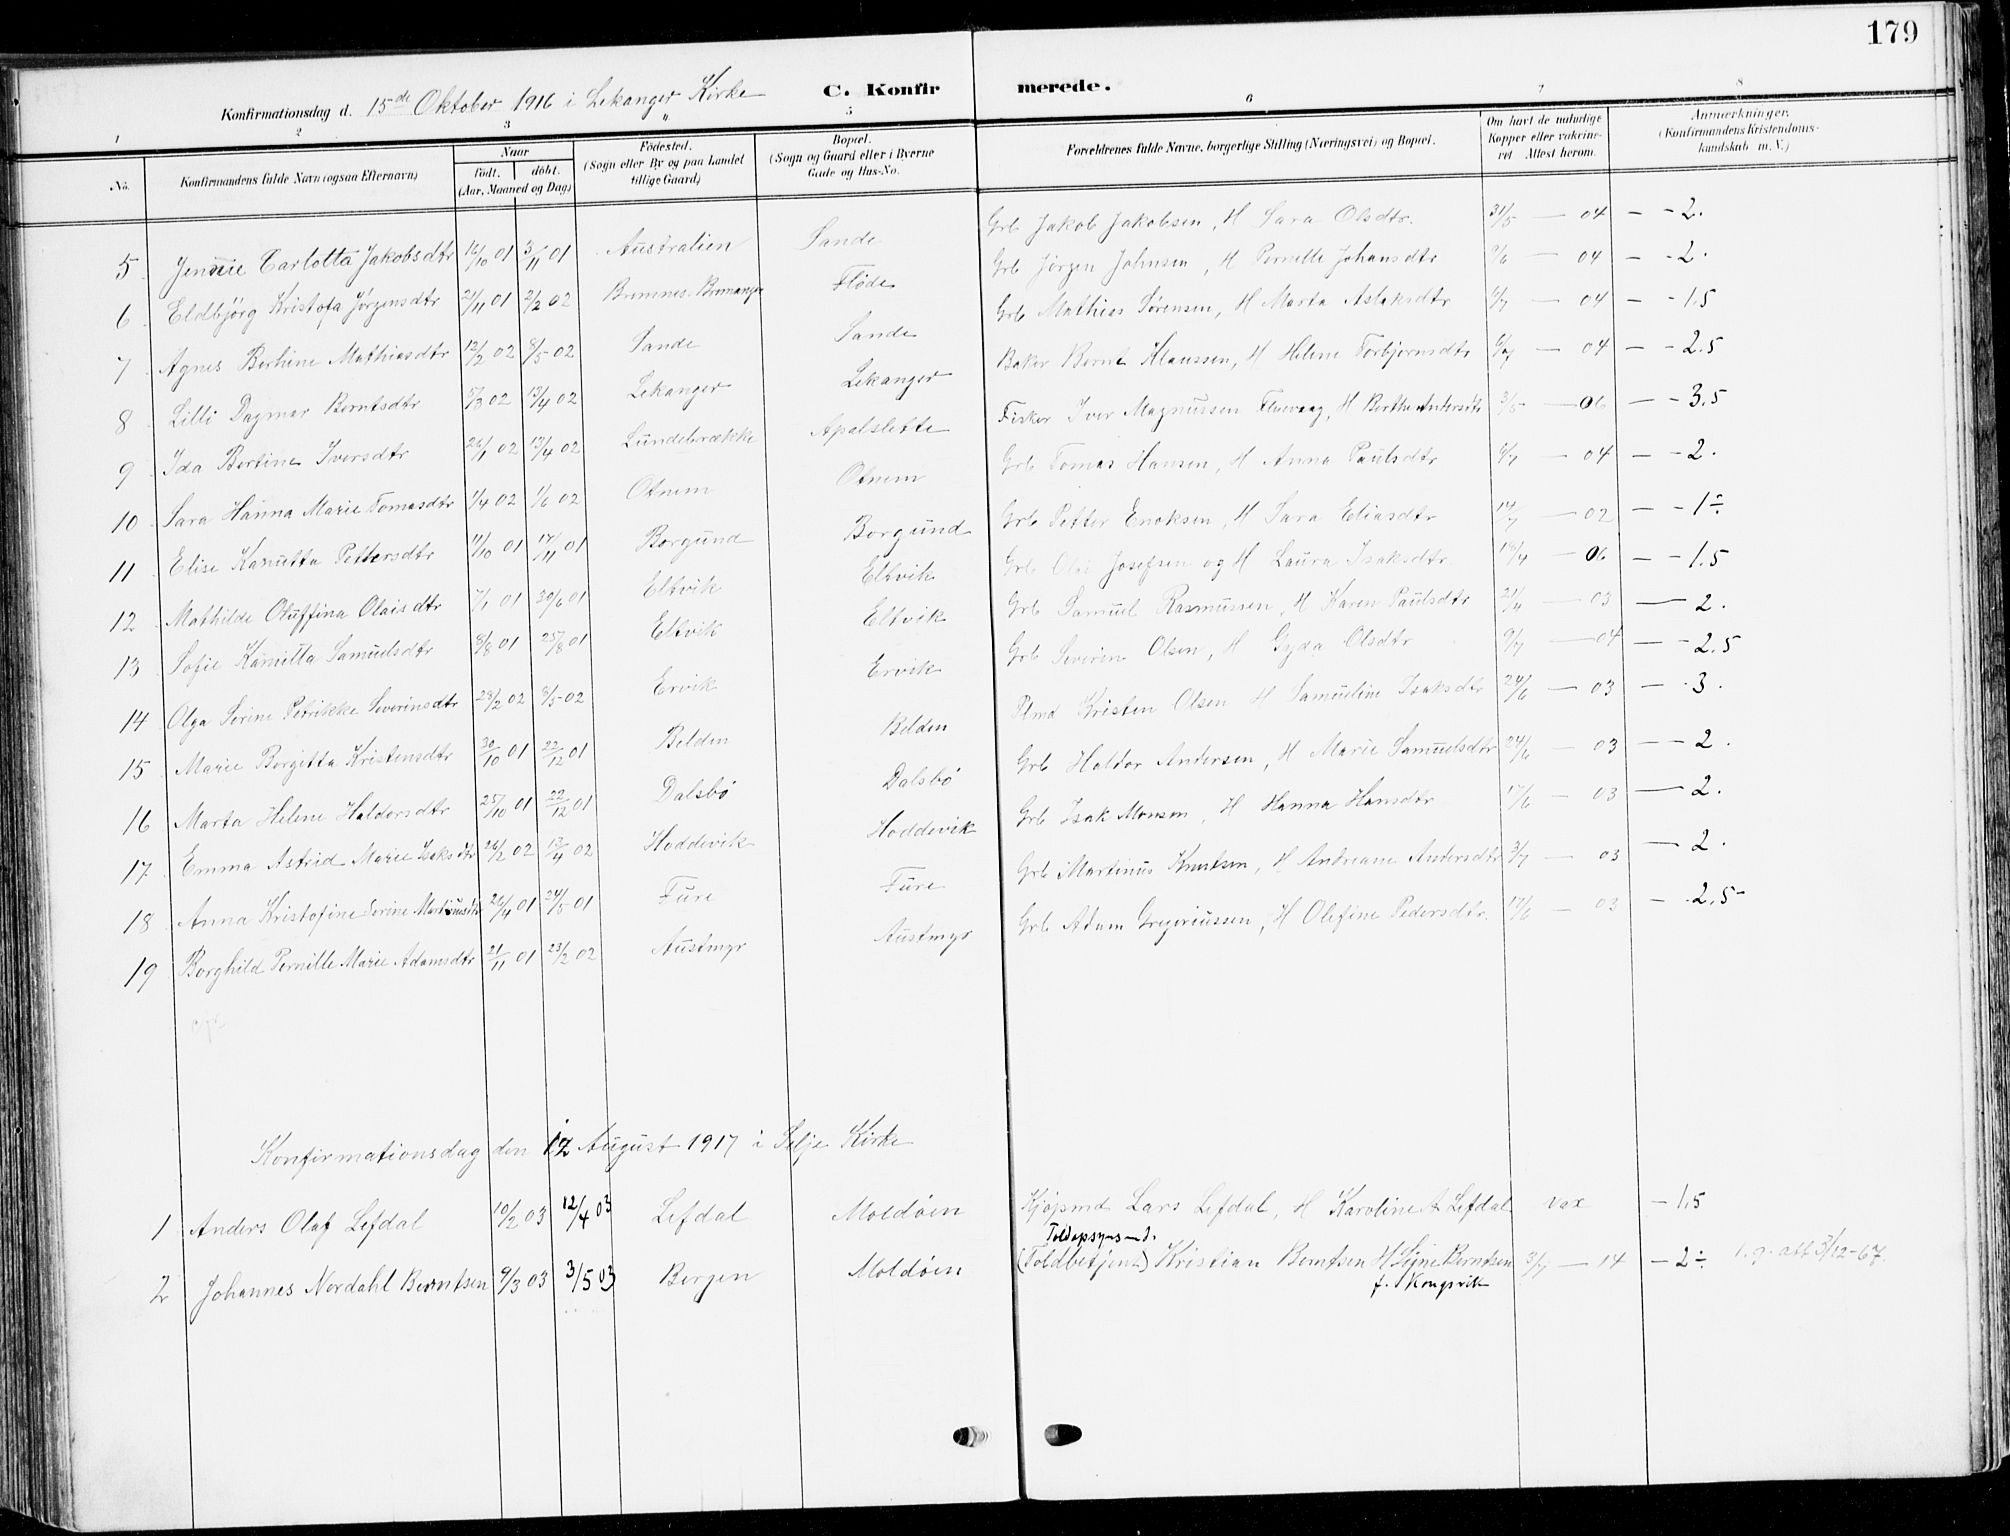 179
Konfirmationsdag d. 15de Oktober 1916 i Lekanger Kirke C. Konfirmerede.
1 2 3 4 5 6 7 8
No. Konfirmandens fulde Navn (ogsaa Efternavn) Naar født. døbt. (Aar, Maaned og Dag) Fødested. (Sogn eller By og paa Landet tillige Gaard) Bopæl. (Sogn og Gaard eller i Byerne Gade og Hus-No. Forældrenes fulde Navne, borgerlige Stilling (Næringsvei) og Bopæl. Om havt de naturlige Kopper eller vakcineret Attest herom. Anmærkninger. (Konfirmandens Kristendomskundskab m. V.)
5 Jennie Carlotta Jakobsdtr 16/10 01 3/11 01 Australien Sande Grb Jakob Jakobsen, H Sara Olsdtr. 31/5 — 04 — - 2.
6 Eldbjörg Kristofa Jørgensdtr 21/11 01 2/2 02 Bremnes-Bremanger Fløde Grb Jørgen Johnsen, H Pernille Johansdtr 9/6 — 04 — - 2.
7 Agnes Berhine Mathiasdtr 12/2 02 8/5 02 Sande Sande Grb Mathias Sørensen, H Marta Aslaksdtr 6/7 — 04 — - 1.5
8 Lilli Dagmar Berntsdtr 5/3 02 13/4 02 Lekanger Lekanger Baker Bernt Klaussen, H Helene Torbjørnsdtr 6/7 — 04 — - 2.5
9 Ida Bertine Iversdtr 26/1 02 13/4 02 Lundebrække Apalslette Fisker Iver Magnussen, H Berthe Andersdtr 3/5 — 06 — - 3.5
10 Sara Hanna Marie Tomasdtr 1/4 02 1/6 02 Otnem Otnem Grb Tomas Hansen, H Anna Paulsdtr 6/7 — 04 — - 2.
11 Elise Kanutta Pettersdtr 11/10 01 17/11 01 Borgund Borgund Grb Petter Enoksen, H Sara Eliasdtr 14/7 — 02 — - 1 ÷
12 Mathilde Oluffina Olaisdtr 7/1 01 30/6 01 Eltvik Eltvik Grb Olai Josefsen og H Laura Isaksdtr 18/4 — 06 — - 1.5
13 Sofie Kanutta Samuelsdtr 8/8 01 25/8 01 Eltvik Eltvik Grb Samuel Rasmussen, H Karen Paulsdtr 21/4 — 03 — 2.
14 Olga Serine Petrikke Severinsdtr 28/2 02 8/5 02 Ervik Ervik Grb Severin Olsen, H Gyda Olsdtr 9/7 — 04 — - 2.5
15 Marie Borgitta Kristensdtr 30/10 01 22/12 01 Belden Belden Plmd Kristen Olsen H Samueline Isaksdtr 24/6 — 03 — . 3.
16 Marta Helene Haldorsdtr 25/10 01 22/12 01 Dalsbø Dalsbø Grb Haldor Andersen, H Marie Samuelsdtr 24/6 — 03 — 2.
17 Emma Astrid Marie Isaksdtr 26/2 02 13/4 02 Hoddevik Hoddevik Grb Isak Monsen, H Hanna Hansdtr 17/6 — 03 — 2.
18 Anna Kristofine Serine Martinusdtr 26/4 01 24/5 01 Fure Fure Grb Martinus Knutsen, H Andreane Andersdtr 3/7 — 03 — 2.
19 Borghild Pernille Marie Adamsdtr 21/11 01 23/2 02 Austmyr Austmyr Grb Adam Gregoriussen, H Olefine Pedersdtr. 17/6 — 03 — . 2.5
Konfirmationsdag den 12 August 1917 i Selje Kirke
1 Anders Olaf Lefdal 10/2 03 12/4 03 Lefdal Moldøen Kjøpmd Lars Lefdal, H Karoline A Lefdal vax — 1.5
Toldopsynsmd.
2 Johannes Nordahl Berntsen 9/3 03 3/5 03 Bergen Moldøen (Toldbetjent) Kristian Berntsen H Signe Berntsen 3/7 — 14 — 2 ÷ l. g. att 3/12-67.
f. Kongsvik